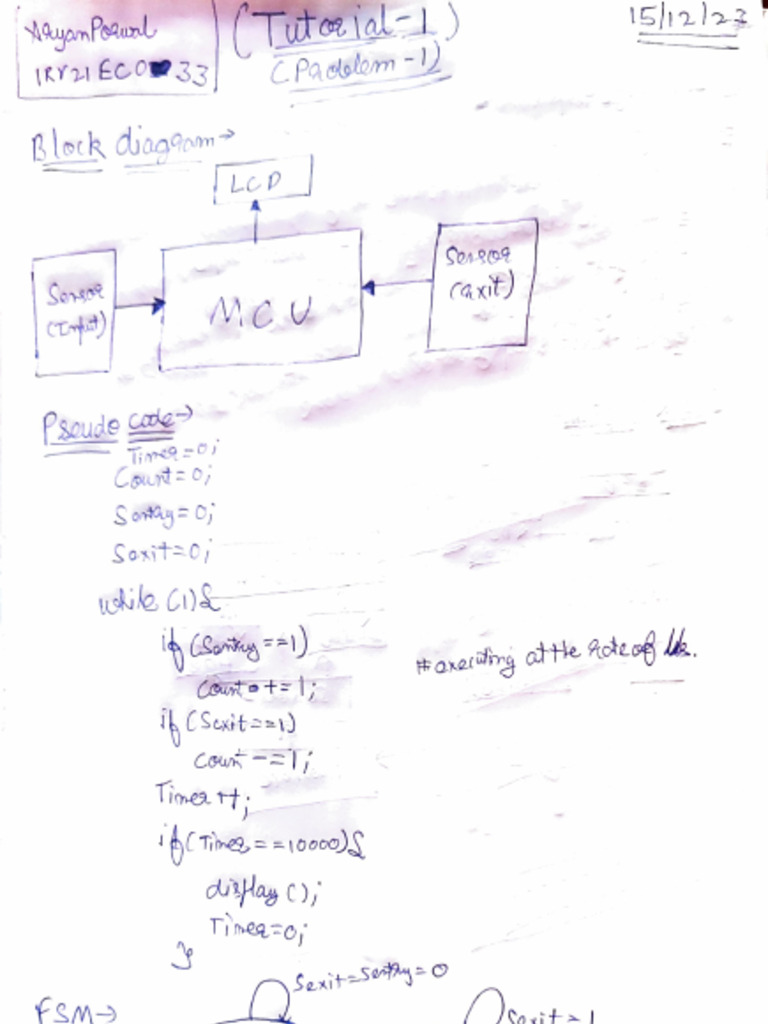 Aryan Porwal
(Tutorial-1)
15/12/23
1RV21EC033
(Problem-1)
Block diagram→
LCD
Sensor
(Input)
MCU
Sensor
(exit)
Pseudo code→
Timer=0;
Count=0;
Sentry=0;
Sexit=0;
while (1){
if (Sentry==1)
Count+=1;
#executing at the rate of
if (Sexit==1)
Count-=1;
Timer++;
if(Timer==10000){
display();
Timer=0;
}
Sexit=Sentry=0
FSM→
Sexit=1